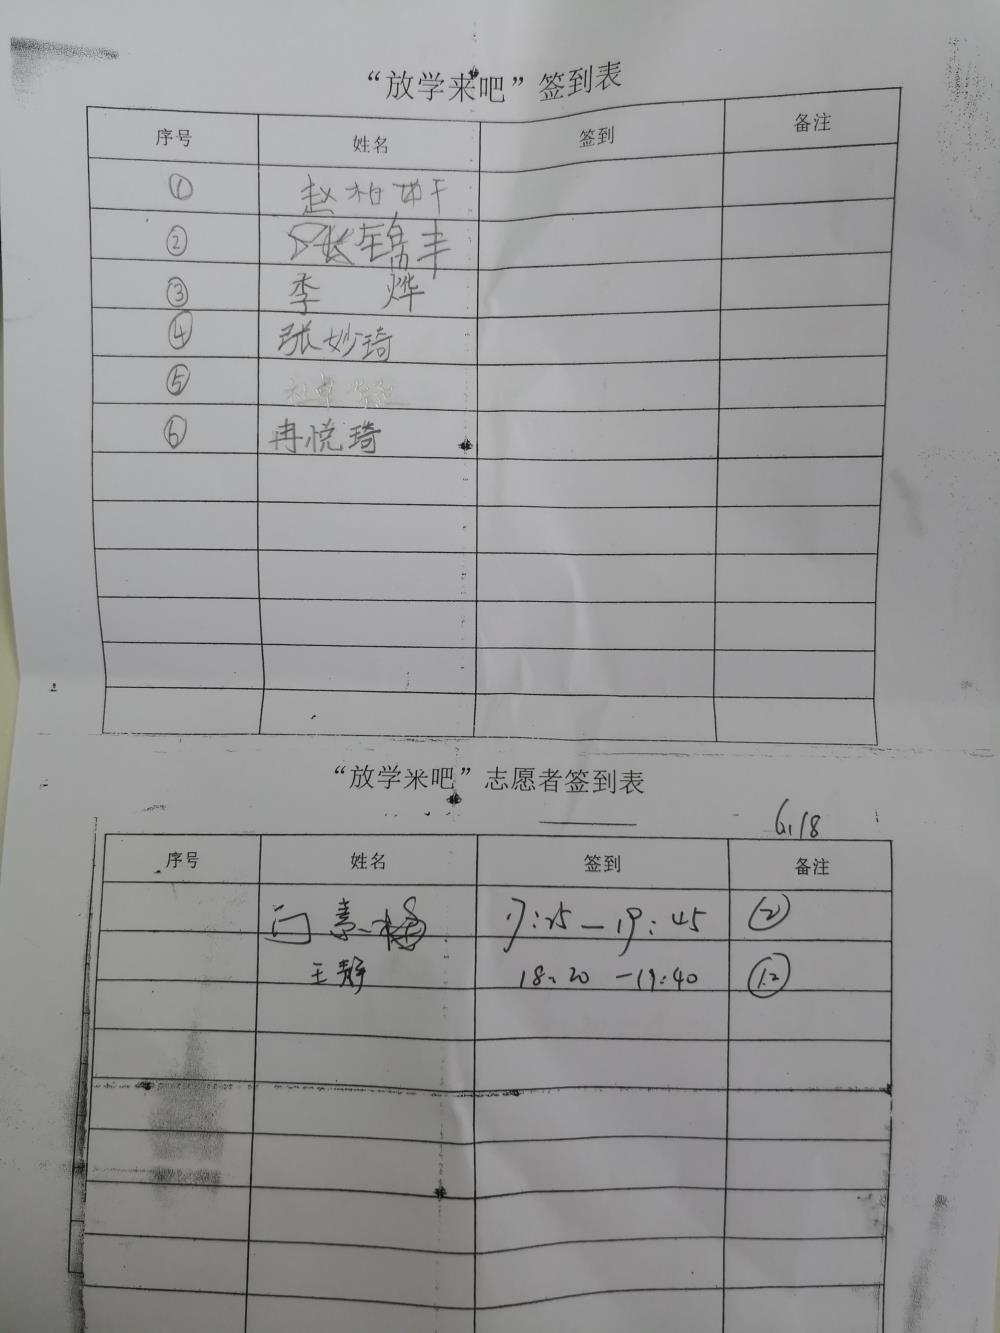 “放学来吧”签到表
序号 姓名 签到 备注
① 赵柏
② 张 丰
③ 李 烨
④ 张妙琦
⑤
⑥ 冉悦琦
“放学来吧”志愿者签到表
6.18
序号 姓名 签到 备注
闫素梅 17:25—19:45 ②
王静 18:20 —19:40 1.2